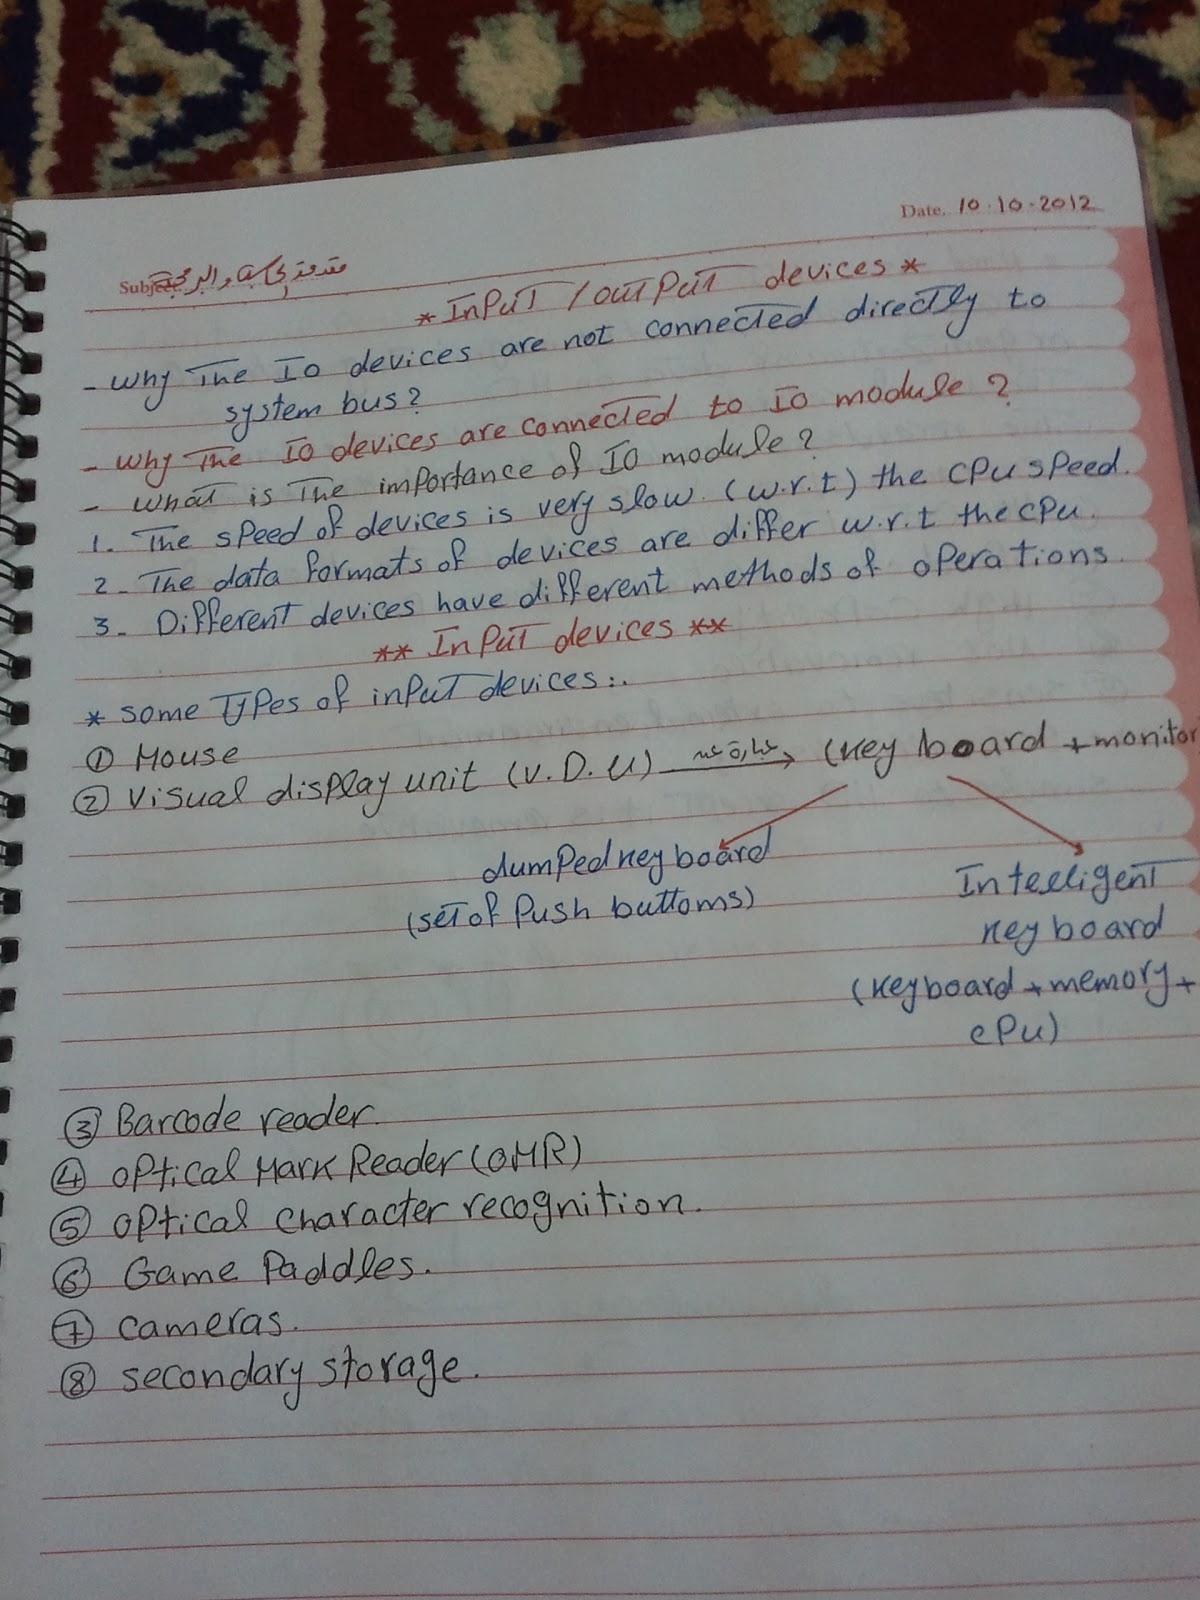 Date. 10.10.2012
Subject مقدمة الحاسبة والبرمجة
* InPuT / outPut devices *
- why The Io devices are not connected directly to
system bus?
- why The IO devices are connected to IO module ?
- what is The importance of IO module ?
1. The speed of devices is very slow. (w.r.t) the CPU speed.
2- The data formats of devices are differ w.r.t the cpu.
3- Different devices have different methods of operations.
** InPut devices **
* some Types of input devices:.
① Mouse
② visual display unit (V.D.U) عبارة عن (Key board + monitor
dumped key board
(set of Push buttoms)
Intelligent
key board
(keyboard + memory +
cPu)
③ Barcode reader.
④ optical Mark Reader (OMR)
⑤ optical character recognition.
⑥ Game Paddles.
⑦ cameras.
⑧ secondary storage.